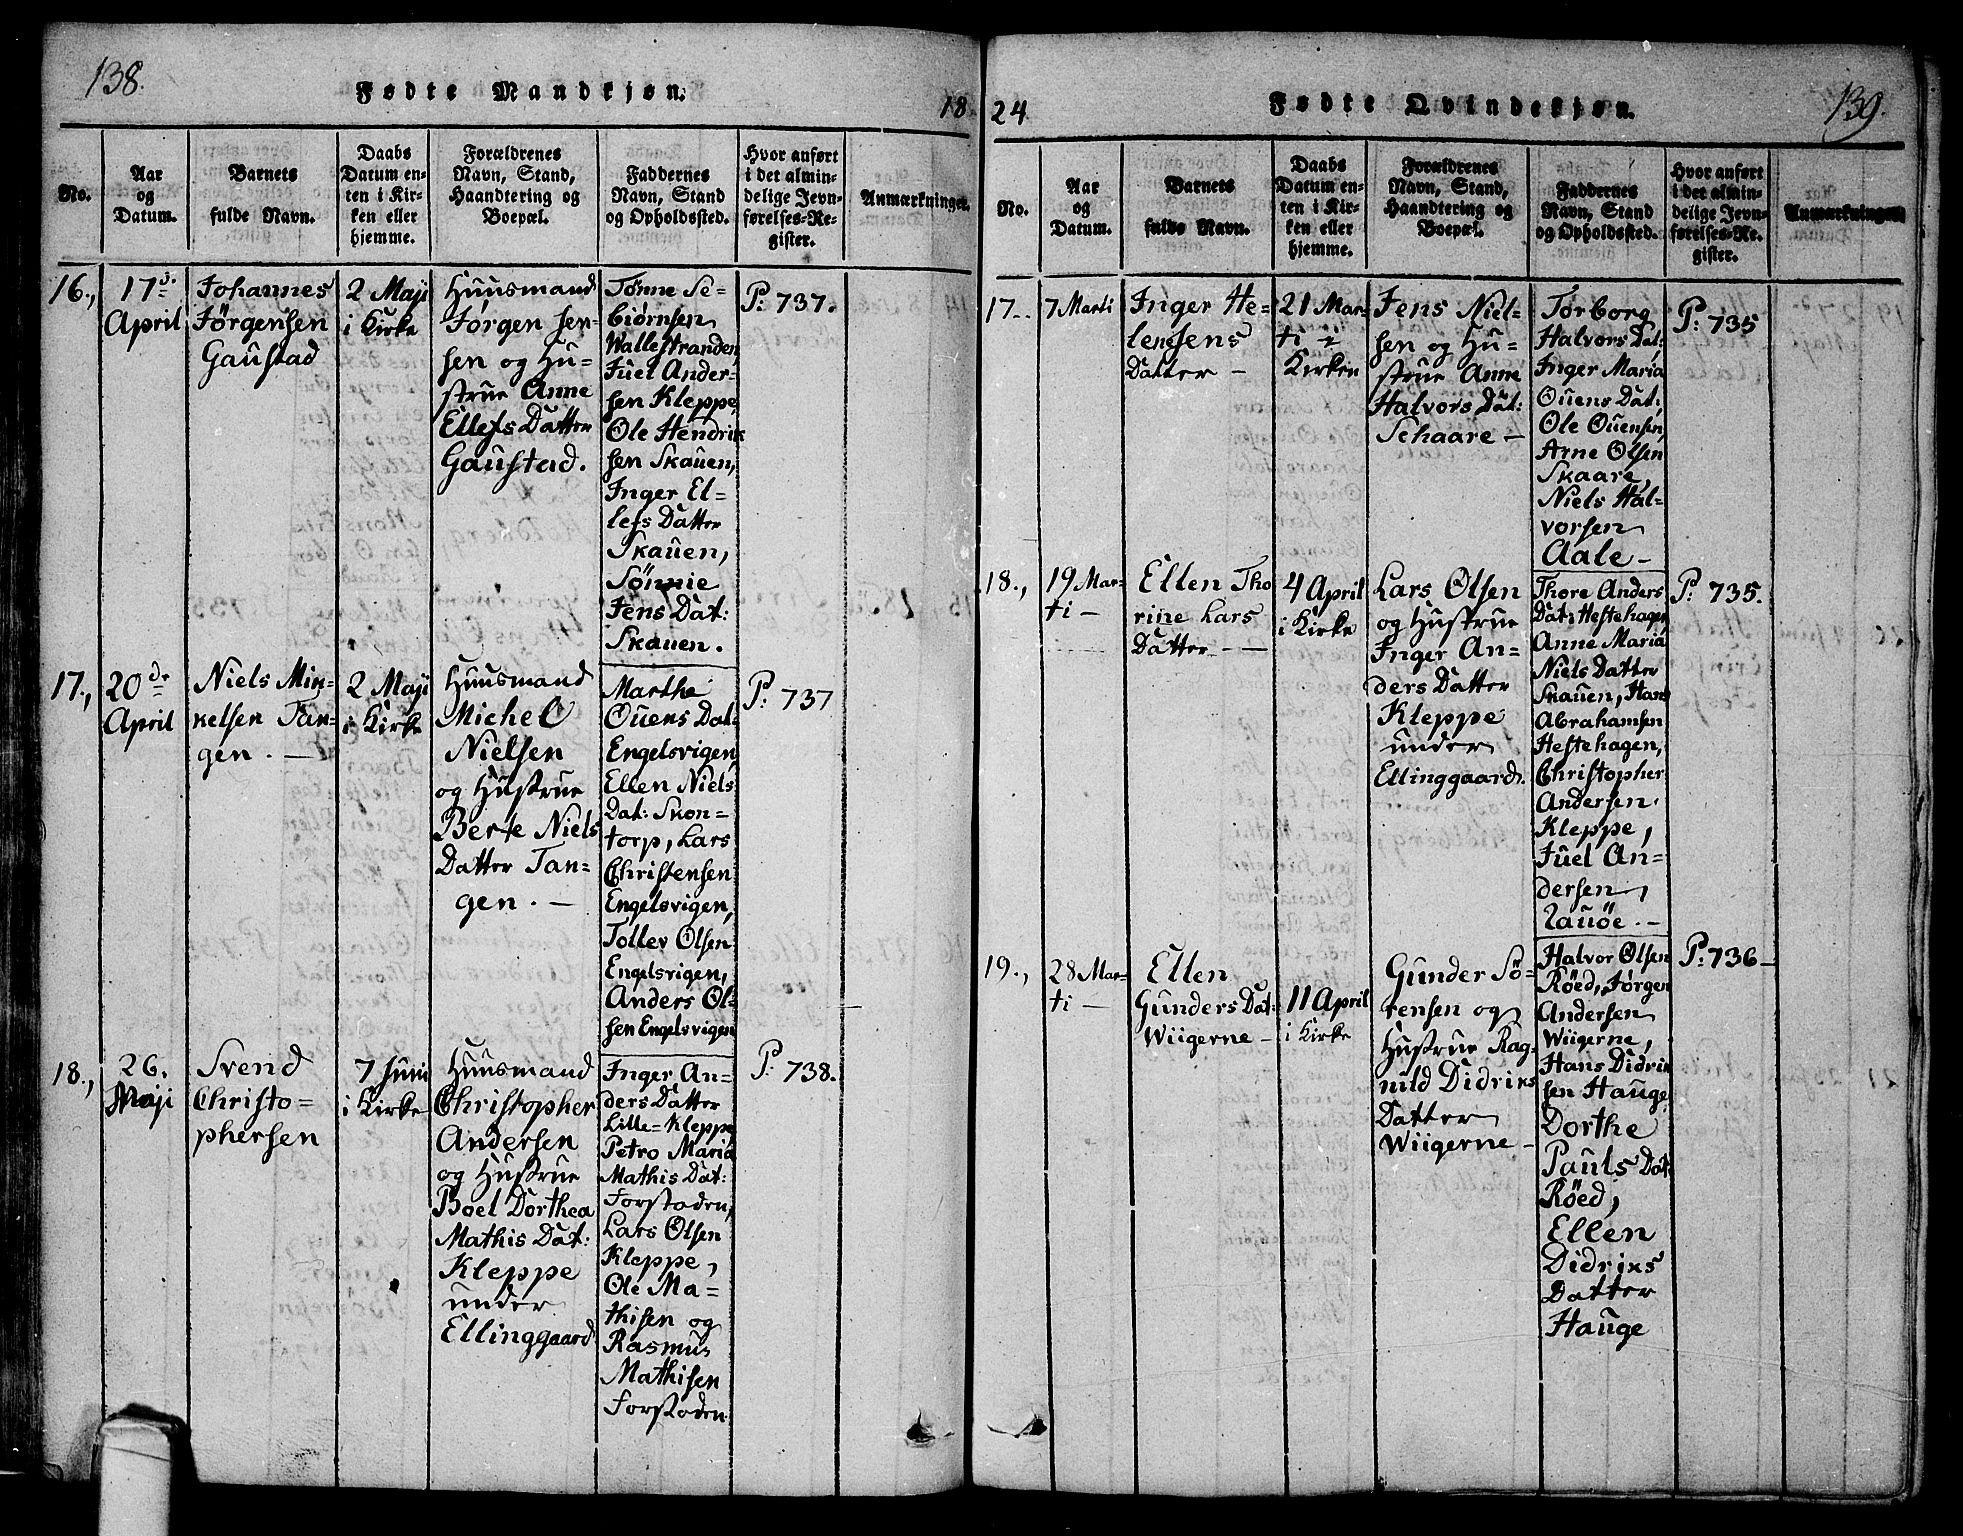 138.
Fødte Mandkjøn.
18
No.
Aar
og
Datum.
Barnets
fulde Navn.
Daabs
Datum en-
ten i Kir-
ken eller
hjemme.
Forældrenes
Navn, Stand,
Haandtering og
Boepæl.
Faddernes
Navn, Stand
og Opholdssted.
Hvor anført
i det almin-
delige Jevn-
førelses-Re-
gister.
Anmærkninger.
16.,
17d.
April
Johannes
Jørgensen
Gaustad
2 Maji
i Kirke
Huusmand
Jørgen Jen-
sen og Hu-
strue Anne
Ellefs Datter
Gaustad.
Tønne Se-
biørnsen
Wallestranden,
Juel Ander-
sen Kleppe,
Ole Hendrik
sen Skauen,
Inger El-
lefs Datter
Skauen,
Sønnie
Jens Dat:
Skauen.
P: 737.
17.,
20de
April
Niels Min-
kelsen Tan-
gen. —
2 Maji
i Kirke
Huusmand
Michel
Nielsen
og Hustrue
Berte Niels
Datter Tan-
gen. —
Marthe
Ouens Dat:
Engelsvigen,
Ellen Niels
Dat: Skon-
torp, Lars
Christensen
Engelsvigen,
Tollev Olsen
Engelsvigen,
Anders Ol-
sen Engelsvigen
P: 737
18.,
26.
Maji
Svend
Christo-
phersen
7 Juni
i Kirke
Huusmand
Christopher
Andersen
og Hustrue
Boel Dorthea
Mathis Dat:
Kleppe
under
Ellinggaard
Inger An-
ders Datter
Lille-Kleppe
Petro Maria
Mathis Dat:
Forstaden,
Lars Olsen
Kleppe,
Ole Ma-
thisen og
Rasmus
Mathisen
Forstaden.
P: 738.
24
Fødte Qvindekjøn.
139.
No.
Aar
og
Datum.
Barnets
fulde Navn.
Daabs
Datum en-
ten i Kir-
ken eller
hjemme.
Forældrenes
Navn, Stand,
Haandtering og
Boepæl.
Faddernes
Navn, Stand
og Opholdssted.
Hvor anført
i det almin-
delige Jevn-
førelses-Re-
gister.
Anmærkninger
17..
7 Marti
Inger He-
lene Jens
Datter —
21 Mar-
ti i
Kirken
Jens Niel-
sen og Hu-
strue Anne
Halvors Dat:
Schaare —
Torborg
Halvors Dat:
Inger Maria
Ouens Dat:
Ole Ouensen,
Arne Olsen
Skaare,
Niels Hal-
vorsen
Aale —
P: 735
18.,
19 Mar-
ti —
Ellen Tho
rine Lars
Datter —
4 April
i Kirke
Lars Olsen
og Hustrue
Inger An-
ders Datter
Kleppe
under
Ellinggaard.
Thore Anders
Dat: Heftehagen
Anne Maria
Niels Datter
Skauen, Hans
Abrahamsen
Heftehagen,
Christopher
Andersen
Kleppe,
Juel An-
dersen,
Rauöe. —
P: 735.
19.,
28 Mar-
ti —
Ellen
Gunders Dat:
Wiigerne —
11 April
i Kirke
Gunder Sö-
rensen og
Hustrue Rag-
nild Didriks
Datter
Wiigerne —
Halvor Olsen
Röed, Jørgen
Andersen
Wiigerne,
Hans Didrik
sen Hauge
Dorthe
Pauls Dat:
Röed,
Ellen
Didriks
Datter
Hauge
P: 736 —